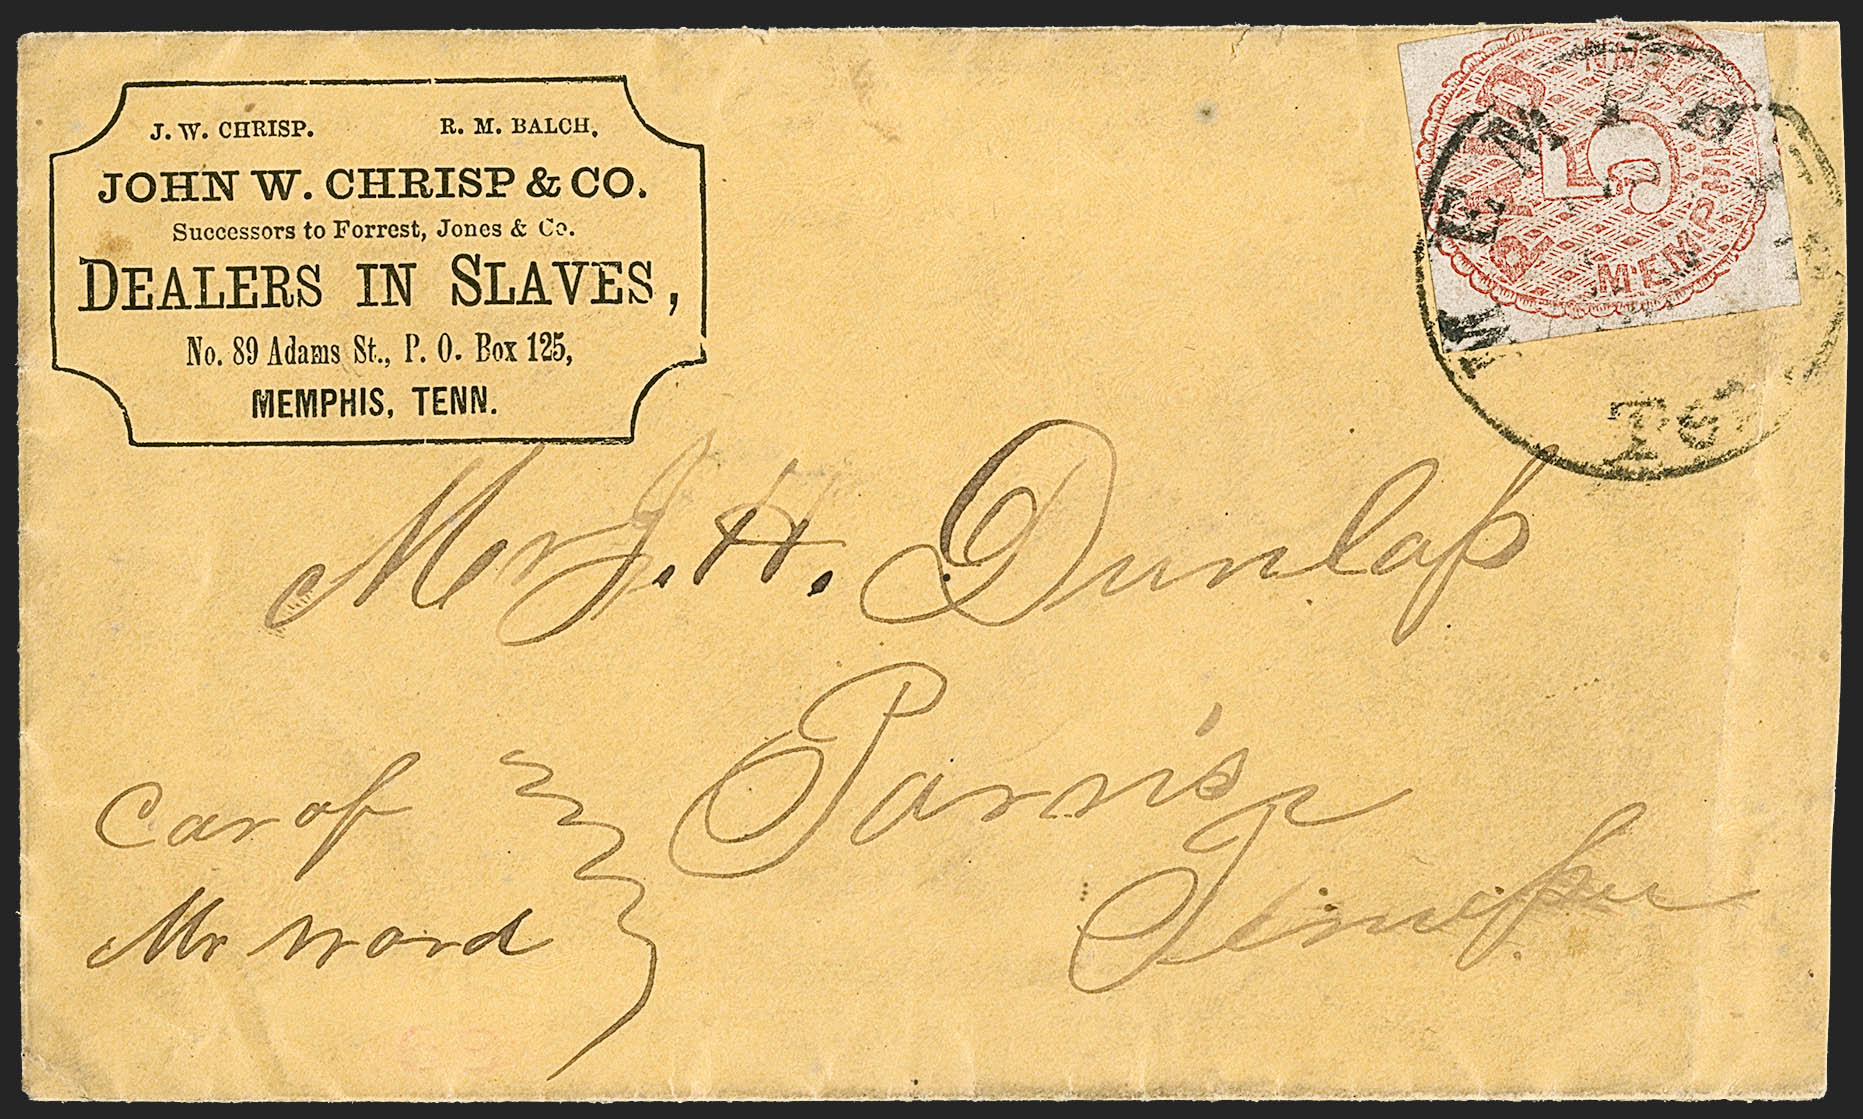 J. W. CHRISP. R. M. BALCH.
JOHN W. CHRISP & CO.
Successors to Forrest, Jones & Co.
DEALERS IN SLAVES,
No. 89 Adams St., P. O. Box 125,
MEMPHIS, TENN.
PAID 5 TENN.
MEMPHIS
MEMPHIS
Mr J. H. Dunlap
Parris
Tennessee
Car of
Mr Word